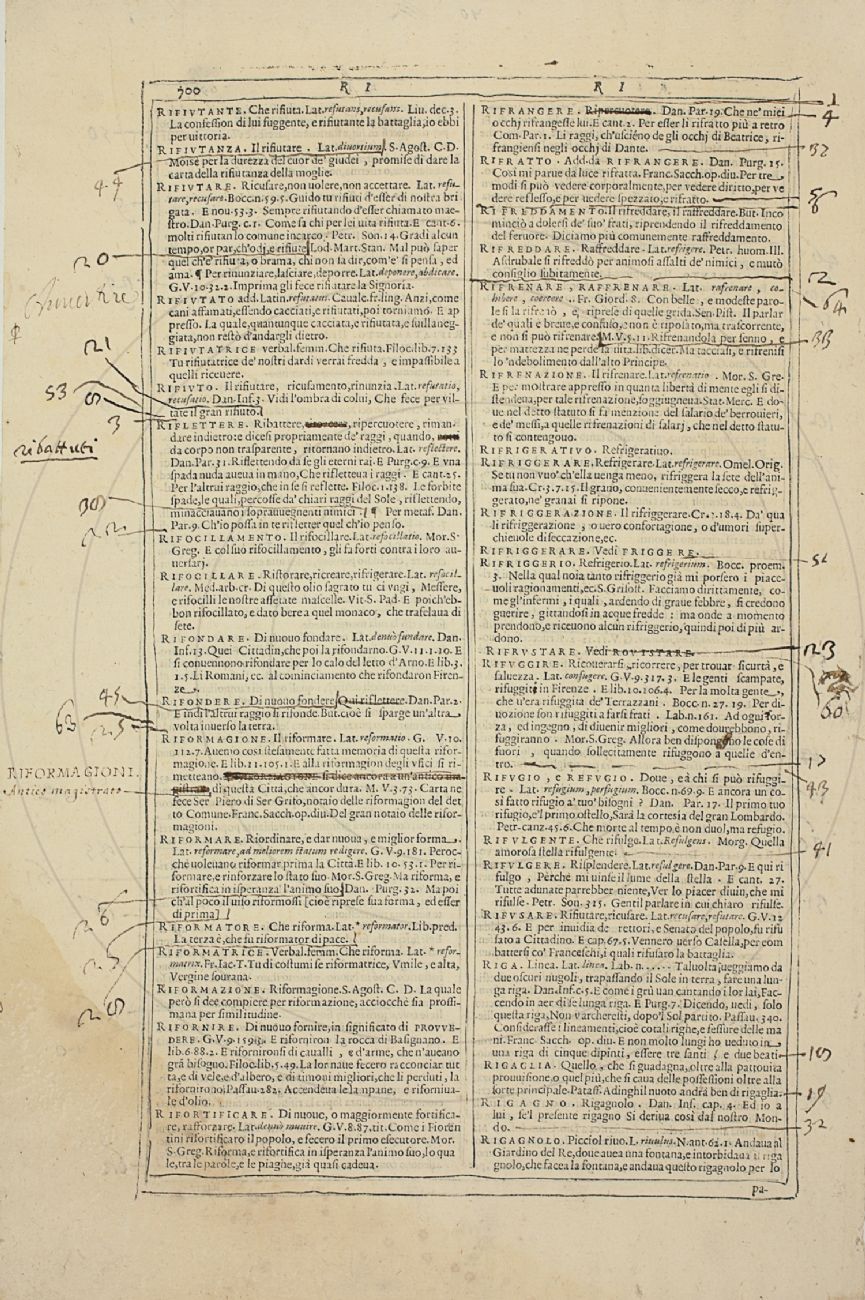 700
R I
R I
RIFIVTANTE. Che rifiuta. Lat. refutans, recusans. Liu. dec. 3.
La confession di lui fuggente, e rifiutante la battaglia, io ebbi
per uittoria.
RIFIVTANZA. Il rifiutare. Lat. diuortium. S. Agost. C. D.
Moisè per la durezza del cuor de' giudei, promise di dare la
carta della rifiutanza della moglie.
RIFIVTARE. Ricusare, non uolere, non accettare. Lat. refu-
tare, recusare. Bocc. n. 59. 5. Guido tu rifiuti d'esser di nostra bri
gata. E nou. 53. 3. Sempre rifiutando d'esser chiamato mae-
stro. Dan. Purg. c. 1. Come fa chi per lei uita rifiuta. E cant. 6.
molti rifiutan lo comune incarco. Petr. Son. 14. Gradi alcun
tempo, or par, ch'odi, e rifiute. Lod. Mart. Stan. Mal può saper
quel ch'e' rifiuta, o brama, chi non sa dir, com'e' si pensa, ed
ama. ¶ Per rinunziare, lasciare, deporre. Lat. deponere, abdicare.
G. V. 10. 32. 2. Imprima gli fece rifiutare la Signoria.
RIFIVTATO add. Latin. refutatus. Caualc. fr. ling. Anzi, come
cani affumati, essendo cacciati, e rifiutati, poi torniamo. E ap
presso. La quale, quantunque cacciata, e rifiutata, e suillaneg-
giata, non restò d'andargli dietro.
RIFIVTATRICE verbal. femm. Che rifiuta. Filoc. lib. 7. 133
Tu rifiutatrice de' nostri dardi verrai fredda, e impassibile a
quelli riceuere.
RIFIVTO. Il rifiutare, ricusamento, rinunzia. Lat. refutatio,
recusatio. Dan. Inf. 3. Vidi l'ombra di colui, Che fece per vil-
tate il gran rifiuto.
RIFLETTERE. Ribattere, ripercuotere, riman-
dare indietro: e dicesi propriamente de' raggi, quando,
da corpo non trasparente, ritornano indietro. Lat. reflectere.
Dan. Par. 31. Riflettendo da se gli eterni rai. E Purg. c. 9. E vna
spada nuda aueua in mano, Che rifletteua i raggi. E cant. 25.
Per l'altrui raggio, che 'n se si reflette. Filoc. 1. 138. Le forbite
spade, le quali, percosse da' chiari raggi del Sole, riflettendo,
minacciauano i soprauuegnenti nimici. ¶ Per metaf. Dan.
Par. 9. Ch'io possa in te rifletter quel ch'io penso.
RIFOCILLAMENTO. Il rifocillare. Lat. refocillatio. Mor. S.
Greg. E col suo rifocillamento, gli fa forti contra i loro au-
uersarj.
RIFOCILLARE. Ristorare, ricreare, rifrigerare. Lat. refocil-
lare. Med. arb. cr. Di questo olio sagrato tu ci vngi, Messere,
e rifocilli le nostre assetate mascelle. Vit. S. Pad. E poich'eb-
bon rifocillato, e dato bere a quel monaco, che trafelaua di
sete.
RIFONDARE. Di nuouo fondare. Lat. denuò fundare. Dan.
Inf. 13. Quei Cittadin, che poi la rifondarno. G. V. 11. 1. 10. E
si conuennono rifondare per lo calo del letto d'Arno. E lib. 3.
1. 5. Li Romani, ec. al cominciamento che rifondaron Firen-
ze.
RIFONDERE. Di nuouo fondere. Qui riflettere. Dan. Par. 2.
E indi l'altrui raggio si rifonde. But. cioè si sparge un'altra
volta inuerso la terra.
RIFORMAGIONE. Il riformare. Lat. reformatio. G. V. 10.
112. 7. Auemo così stesamente fatta memoria di questa rifor-
magione. E lib. 11. 105. 1. E alla riformagion degli vfici si ri-
metteano. RIFORMAGIONE si dice ancora a un'antico ma-
gistrato, di questa Città, che ancor dura. M. V. 3. 73. Carta ne
fece Ser Piero di Ser Grifo, notaio delle riformagion del det
to Comune. Franc. Sacch. op. diu. Del gran notaio delle rifor-
magioni.
RIFORMARE. Riordinare, e dar nuoua, e miglior forma.
Lat. reformare, ad meliorem statum redigere. G. V. 9. 181. Peroc-
chè uoleuano riformar prima la Città. E lib. 10. 53. 1. Per ri-
formare, e rinforzare lo stato suo. Mor. S. Greg. Ma riforma, e
rifortifica in isperanza l'animo suo. Dan. Purg. 32. Ma poi
ch'al poco il uiso riformossi [cioè riprese sua forma, ed esser
di prima]
RIFORMATORE. Che riforma. Lat. * reformator. Lib. pred.
La terza è, che fu riformator di pace.
RIFORMATRICE. Verbal. femm. Che riforma. Lat. * refor-
matrix. Fr. Iac. T. Tu di costumi se riformatrice, Vmile, e alta,
Vergine sourana.
RIFORMAZIONE. Riformagione. S. Agost. C. D. La quale
però si dee compiere per riformazione, acciocchè sia prossi-
mana per similitudine.
RIFORNIRE. Di nuouo fornire, in significato di PROVVE-
DERE. G. V. 9. 159. 3. E riforniron la rocca di Basignano. E
lib. 6. 88. 2. E rifornironsi di caualli, e d'arme, che n'aueano
gran bisogno. Filoc. lib. 5. 49. La lor naue fecero racconciar tut
ta, e di vele, e d'albero, e di timoni migliori, che li perduti, la
rifornirono. Passau. 282. Accendeua le lampane, e riforniua-
le d'olio.
RIFORTIFICARE. Di nuouo, o maggiormente fortifica-
re, rafforzare. Lat. denuò munire. G. V. 8. 87. tit. Come i Fioren
tini rifortificaro il popolo, e fecero il primo esecutore. Mor.
S. Greg. Riforma, e rifortifica in isperanza l'animo suo, lo qua
le, tra le parole, e le piaghe, già quasi cadeua.
RIFRANGERE. Ripercuotere. Dan. Par. 19. Che ne' miei
occhj rifrangesse lui. E cant. 2. Per esser lì rifratto più a retro
Com. Par. 1. Li raggi, ch'uscieno de gli occhj di Beatrice, ri-
frangiensi negli occhj di Dante.
RIFRATTO. Add. da RIFRANGERE. Dan. Purg. 15.
Così mi parue da luce rifratta. Franc. Sacch. op. diu. Per tre
modi si può vedere corporalmente, per vedere diritto, per ve
dere reflesso, e per uedere spezzato, e rifratto.
RIFREDDAMENTO. Il rifreddare, il raffreddare. But. Inco
minciò a dolersi de' suo' frati, riprendendo il rifreddamento
del feruore. Diciamo più comunemente raffreddamento.
RIFREDDARE. Raffreddare. Lat. refrigere. Petr. huom. Ill.
Asdrubale si rifreddò per animosi assalti de' nimici, e mutò
consiglio subitamente.
RIFRENARE, RAFFRENARE. Lat. refrenare, co-
hibere, coercere. Fr. Giord. S. Con belle, e modeste paro-
le si la rifrenò, e, riprese di quelle grida. Sen. Pist. Il parlar
de' quali è breue, e confuso, e non è riposato, ma trascorrente,
e non si può rifrenare. M. V. 5. 11. Rifrenandola per senno, e
per mattezza ne perde la uita. lib. dicer. Ma tacciasi, e rifrenisi
lo 'ndebolimento dall'alto Principe.
RIFRENAZIONE. Il rifrenare. Lat. refrenatio. Mor. S. Gre.
E per mostrare appresso in quanta libertà di mente egli si di-
stendena, per tale rifrenazione, soggiugneua. Stat. Merc. E do-
ue nel detto statuto si fa menzione del salario de' berrouieri,
e de' messi, a quelle rifrenazioni di salarj, che nel detto statu-
to si contengono.
RIFRIGERATIVO. Refrigeratiuo.
RIFRIGGERARE. Refrigerare. Lat. refrigerare. Omel. Orig.
Se tu non vuo' ch'ella uenga meno, rifriggera la sete dell'ani-
ma sua. Cr. 3. 7. 15. Il grano, conuenientemente secco, e refrig-
gerato, ne' granai si ripone.
RIFRIGGERAZIONE. Il rifriggerare. Cr. 2. 18. 4. Da' qua
li rifriggerazione, o uero confortagione, o d'umori super-
chieuole di seccazione, ec.
RIFRIGGERARE. Vedi FRIGGERE.
RIFRIGGERIO. Refrigerio. Lat. refrigerium. Bocc. proem.
3. Nella qual noia tanto rifriggerio già mi porsero i piace-
uoli ragionamenti, ec. S. Grisost. Facciamo dirittamente, co-
me gl'infermi, i quali, ardendo di graue febbre, si credono
guerire, gittandosi in acque fredde: ma onde a momento
prendono, e riceuono alcun rifriggerio, quindi poi di più ar-
dono.
RIFRVSTARE. Vedi ROVSTARE.
RIFVGGIRE. Ricouerarsi, ricorrere, per trouar sicurtà, e
saluezza. Lat. confugere. G. V. 9. 317. 3. E le genti scampate,
rifuggiti in Firenze. E lib. 10. 106. 4. Per la molta gente,
che u'era rifuggita de' Terrazzani. Bocc. n. 27. 19. Per di-
uozione son rifuggiti a farsi frati. Lab. n. 161. Ad ogni for-
za, ed ingegno, di diuenir migliori, come dourebbono, ri-
fuggiranno. Mor. S. Greg. Allora ben dispongono le cose di
fuori, quando sollecitamente rifuggono a quelle d'en-
tro.
RIFVGIO, e REFVGIO. Doue, e a chi si può rifuggi-
re. Lat. refugium, perfugium. Bocc. n. 69. 9. E ancora un co-
sì fatto rifugio a' tuo' bisogni? Dan. Par. 17. Il primo tuo
rifugio, e 'l primo ostello, Sarà la cortesia del gran Lombardo.
Petr. canz. 45. 6. Che morte al tempo è non duol, ma refugio.
RIFVLGENTE. Che rifulge. Lat. Refulgens. Morg. Quella
amorosa stella rifulgente.
RIFVLGERE. Risplendere. Lat. refulgere. Dan. Par. 9. E qui ri
fulgo, Perchè mi uinse il lume della stella. E cant. 27.
Tutte adunate parrebber niente, Ver lo piacer diuin, che mi
rifulse. Petr. Son. 325. Gentil parlare in cui chiaro rifulse.
RIFVSARE. Rifiutare, ricusare. Lat. recusare, refutare. G. V. 12
43. 6. E per inuidia de rettori, e Senato del popolo, fu rifu
sato a Cittadino. E cap. 67. 5. Vennero uerso Casella, per com
battersi co' Franceschi, i quali rifusaro la battaglia.
RIGA. Linea. Lat. linea. Lab. n. ..... Taluolta ueggiamo da
due oscuri nugoli, trapassando il Sole in terra, fare una lun-
ga riga. Dan. Inf. c. 5. E come i gru uan cantando i lor lai, Fac-
cendo in aer di se lunga riga. E Purg. 7. Dicendo, uedi, solo
questa riga, Non varcheresti, dopo 'l Sol partito. Passau. 340.
Considerasse i lineamenti, cioè cotali righe, e fessure delle ma
ni. Franc. Sacch. op. diu. E non molto lungi ho ueduto in
una riga di cinque dipinti, essere tre santi e due beati
RIGAGLIA. Quello, che si guadagna, oltre alla pattouita
prouuisione, o quel più, che si caua delle possessioni oltre alla
sorte principale. Pataff. A dinghil nuoto andrà ben di rigaglia.
RIGAGNO. Rigagnolo. Dan. Inf. cap. 4. Ed io a
lui, se 'l presente rigagno Si deriua così dal nostro Mon-
do.
RIGAGNOLO. Picciol riuo. Lat. riuulus. N. ant. 62. 1. Andaua al
Giardino del Re, doue auea una fontana, e intorbidaua il riga
gnolo, che facea la fontana, e andaua questo rigagnolo per lo
pa-
20
21
53
3
ribattuti
30
45
63
RIFORMAGIONI.
Antico magistrato
1
4
32
64
33
23
60
17
43
41
19
32